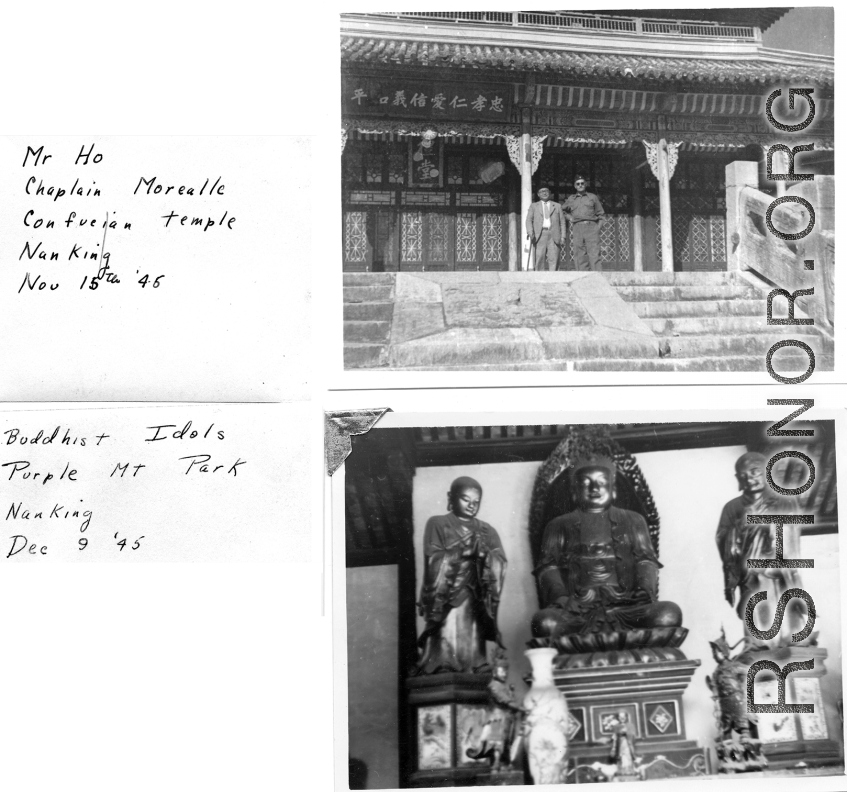 Mr Ho
Chaplain Morealle
Confucian temple
NanKing
Nov 15th '45
忠孝仁愛信義和平
堂
Buddhist Idols
Purple Mt Park
NanKing
Dec 9 '45
RSHONOR.ORG